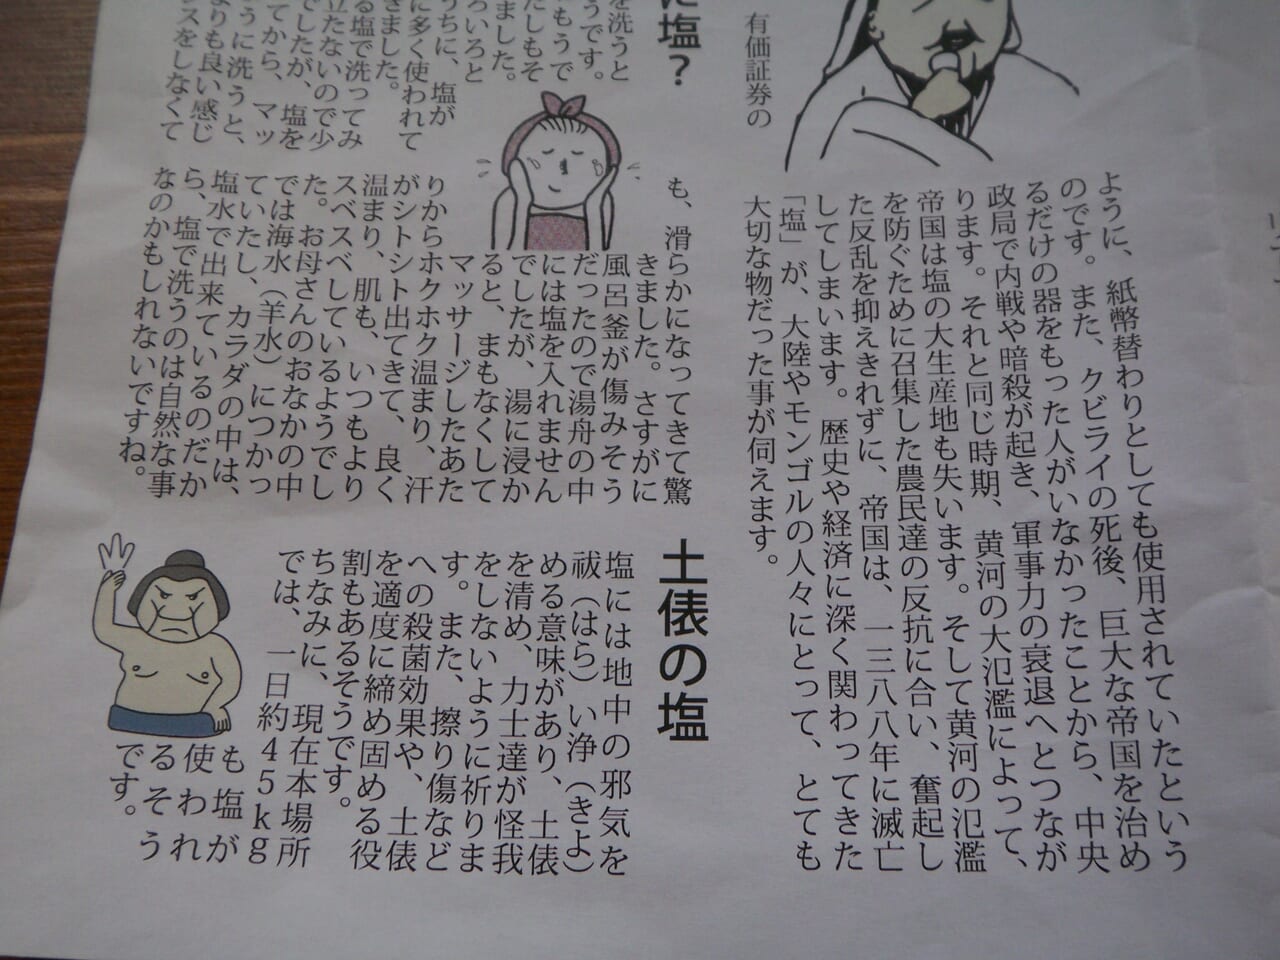 有価証券の
ように、紙幣替わりとしても使用されていたという
のです。また、クビライの死後、巨大な帝国を治め
るだけの器をもった人がいなかったことから、中央
政局で内戦や暗殺が起き、軍事力の衰退へとつなが
ります。それと同じ時期、黄河の大氾濫によって、
帝国は塩の大生産地も失います。そして黄河の氾濫
を防ぐために召集した農民達の反抗に合い、奮起し
た反乱を抑えきれずに、帝国は、一三八八年に滅亡
してしまいます。歴史や経済に深く関わってきた
「塩」が、大陸やモンゴルの人々にとって、とても
大切な物だった事が伺えます。
に塩？
を洗うと
うです。
もうで
たしもそ
ました。
ろいろと
うちに、塩が
に多く使われて
きました。
る塩で洗ってみ
立たないので少
でしたが、塩を
てから、マッ
うに洗うと、
よりも良い感じ
スをしなくて
も、滑らかになってきて驚
きました。さすがに
風呂釜が傷みそう
だったので湯舟の中
には塩を入れません
でしたが、湯に浸か
ると、まもなくして
マッサージしたあた
りからホクホク温まり、汗
がシトシト出てきて、良く
温まり、肌も、いつもより
スベスベしているようでし
た。お母さんのおなかの中
では海水（羊水）につかっ
ていたし、カラダの中は、
塩水で出来ているのだか
ら、塩で洗うのは自然な事
なのかもしれないですね。
土俵の塩
塩には地中の邪気を
祓（はら）い浄（きよ）
める意味があり、土俵
を清め、力士達が怪我
をしないように祈りま
す。また、擦り傷など
への殺菌効果や、土俵
を適度に締め固める役
割もあるそうです。
ちなみに、現在本場所
では、一日約４５ｋｇ
も塩が
使われ
るそう
です。